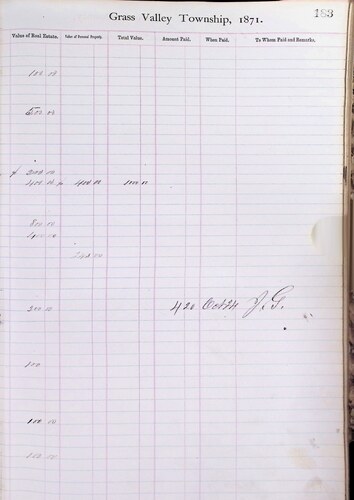 Grass Valley Township, 1871. 183
Value of Real Estate. Value of Personal Property. Total Value. Amount Paid. When Paid. To Whom Paid and Remarks.
100 00
500 00
200 00
400 00 400 00
800 00
400 00
200 00 4 20 Oct 24 J. G.
100
100 00
100 00